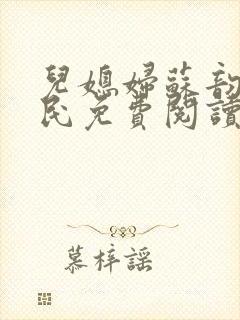 兒媳婦蘇韵
民免費閱讀
慕梓謠